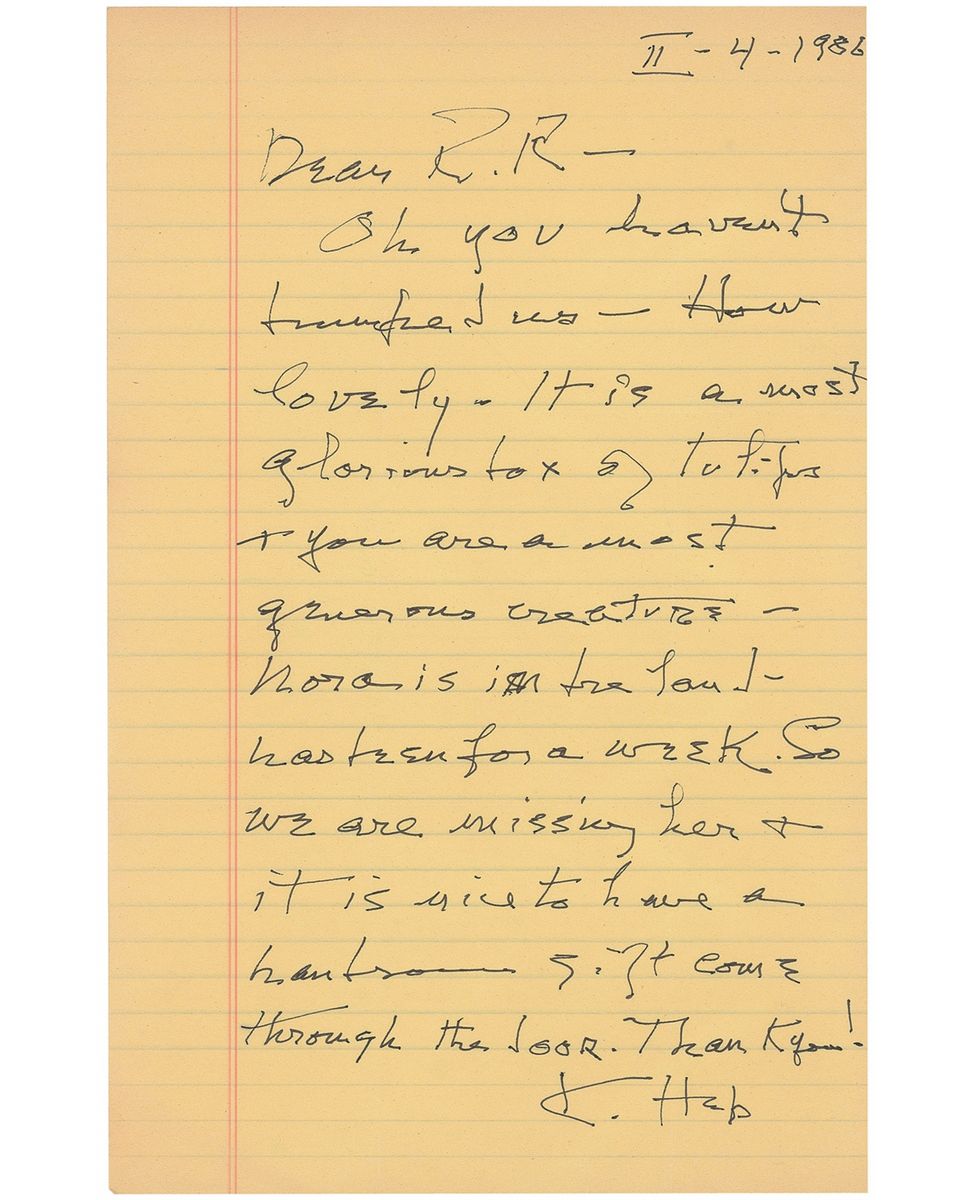 II - 4 - 1986
Dear R.R —
Oh you haven't
us — How
lovely - It is a most
glorious box of tulips
+ you are a most
generous creature —
Nora is in the land -
has been for a week. So
we are missing her +
it is nice to have a
handsome gift come
through the door. Thank you!
K. Hep